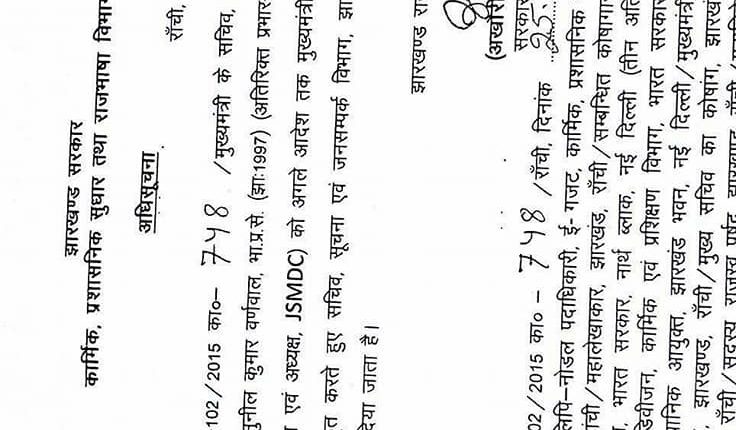 झारखण्ड सरकार
कार्मिक, प्रशासनिक सुधार तथा राजभाषा विभाग
अधिसूचना
राँची,
102/2015 का०– 748 /मुख्यमंत्री के सचिव,
सुनील कुमार वर्णवाल, भा.प्र.से. (झाः1997) (अतिरिक्त प्रभार
एवं अध्यक्ष, JSMDC) को अगले आदेश तक मुख्यमंत्री
करते हुए सचिव, सूचना एवं जनसम्पर्क विभाग,
दिया जाता है।
झारखण्ड
(अखौरी
सरकार
02/2015 का० – 748 /राँची, दिनांक 25.
लिपि–नोडल पदाधिकारी, ई– गजट, कार्मिक, प्रशासनिक
राँची/महालेखाकार, झारखंड, राँची/सम्बन्धित कोषागार
भारत सरकार, नार्थ ब्लाक, नई दिल्ली (तीन
डिवीजन, कार्मिक एवं प्रशिक्षण विभाग, भारत सरकार
आयुक्त, झारखंड भवन, नई दिल्ली/मुख्यमंत्री
झारखण्ड, राँची/मुख्य सचिव का कोषांग,
राँची/सदस्य राजस्व पर्षद